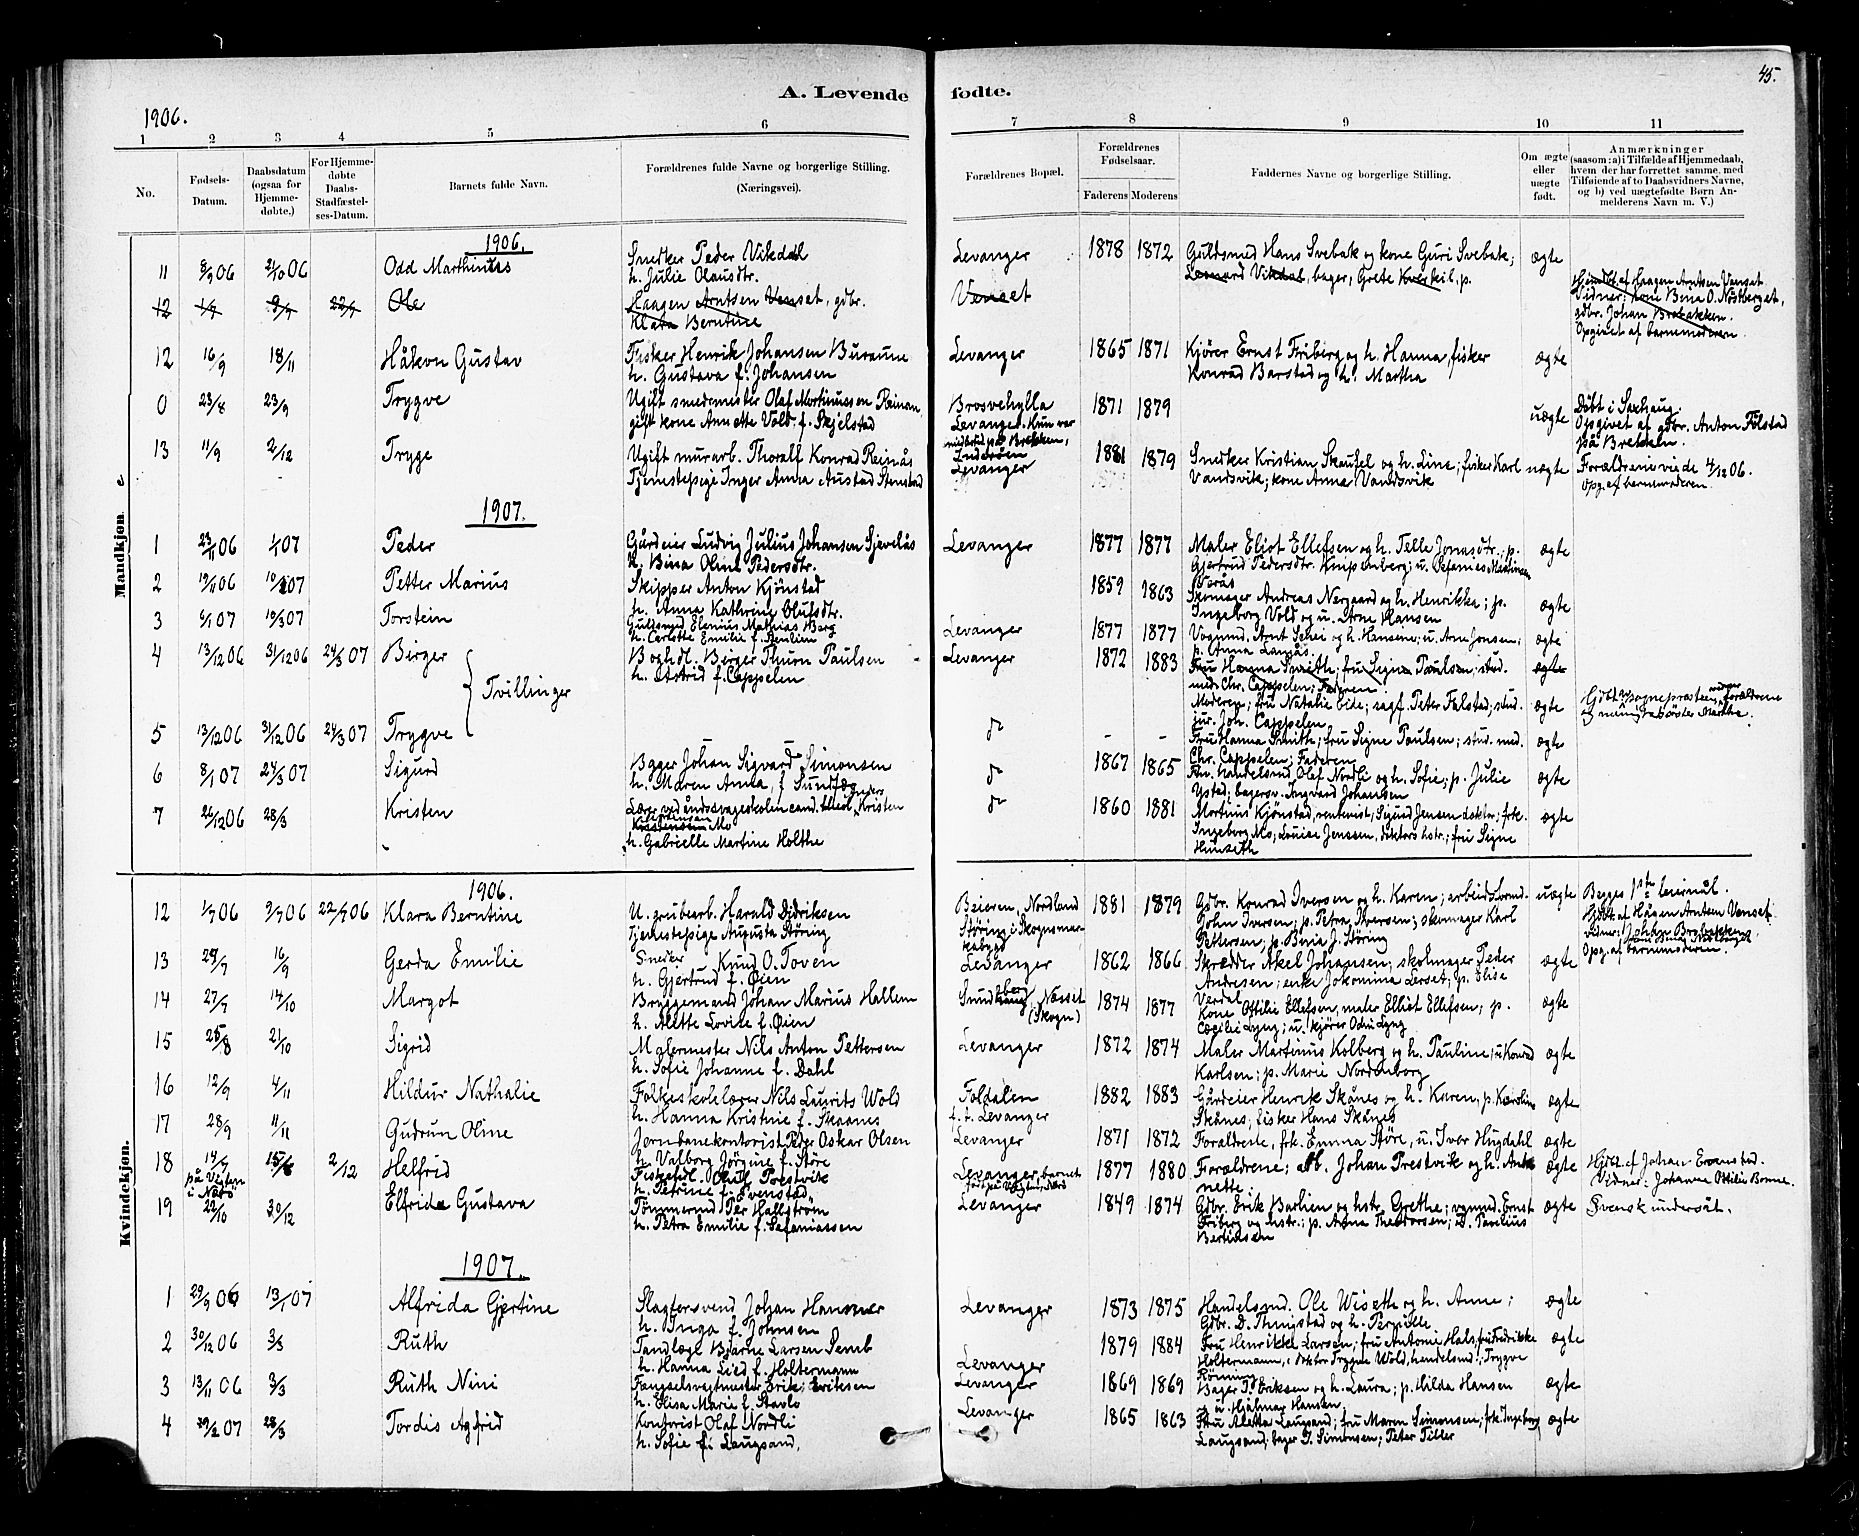 45.
A. Levende fødte.
1906.
1 2 3 4 5 6 7 8 9 10 11
No.
Fødsels-Datum.
Daabsdatum (ogsaa for Hjemme-døbte.)
For Hjemme-døbte Daabs-Stadfæstel-ses-Datum.
Barnets fulde Navn.
Forældrenes fulde Navne og borgerlige Stilling. (Næringsvei).
Forældrenes Bopæl.
Forældrenes Fødselsaar.
Faderens Moderens
Faddernes Navne og borgerlige Stilling.
Om ægte eller uægte født.
Anmærkninger (saasom: a) i Tilfælde af Hjemmedaab, hvem der har forrettet samme, med Tilføiende af to Daabsvidners Navne, og b) ved uægtefødte Børn Anmelderens Navn m. V.)
Mandkjøn.
1906.
11 8/9 06 21/10 06 Odd Marthinus Snedker Peder Vikdal Levanger 1878 1872 Guldsmed Hans Svebak og kone Guri Svebak; ægte
h. Julie Olausdtr. Leonard Vikdal, bager, Grete Kverkil, p.
12 1/7 9/7 22/7 Ole Haagen Arntsen Venset, gdbr. Venset Hjemdbt. af Haagen Arntsen Venset
Klara Berntine Vidner: kone Bina O. Nøstberget,
gdbr. Johan Brebakken.
Opgivet af barnemoderen.
12 16/9 18/11 Håkon Gustav Fisker Henrik Johansen Buraune Levanger 1865 1871 Kjører Ernst Friberg og h. Hanna, fisker ægte
h. Gustava f. Johansen Konrad Barstad og h. Martha
0 23/8 23/9 Trygve Ugift smedemester Olaf Martinussen Reinan, Brosvehylla 1871 1879 uægte Døbt i Saxhaug.
gift kone Annette Vold f. Skjelstad Levanger. Hun var Opgivet af gdbr. Anton Følstad
på Brekken.
Inderøen
13 11/9 2/12 Tryge Ugift murarb. Thoralf Konrad Reinås Levanger 1881 1879 Snedker Kristian Skaufel og h. Line; fisker Karl uægte Forældrene viede 4/12 06.
Tjenestepige Inger Anna Austad Stenstad Vandsvik; kone Anna Vandsvik Opg. af barnemoderen.
1907.
1 23/11 06 1/1 07 Peder Gårdeier Ludvig Julius Johansen Gjevelås Levanger 1877 1877 Maler Eliot Ellefsen og h. Telle Jonasdtr.; p. ægte
h. Bina Oline Pedersdtr. Gjertrud Pedersdtr. Knipenberg; u. Stefanies Martinsen
2 19/11 06 10/2 07 Petter Marius Skipper Anton Kjønstad 1859 1863 Skomager Andreas Nergaard og h. Henrikka; p. ægte
h. Anna Kathrine Olufsdtr. Ingeborg Vold og u. Arne Hansen
3 6/1 07 19/3 07 Torstein Guldsmed Elenius Mathias Berg Levanger 1877 1877 Vognmd. Arnt Schei og h. Hansene; u. Arne Jonsen; ægte
h. Carlotte Emilie f. Paulsen p. Anna Lamås.
4 13/12 06 31/12 06 24/3 07 Birger Boghdl. Birger Thuon Paulsen Levanger 1872 1883 Fru Hanna Smith; fru Signe Paulsen; stud. ægte
h. Astrid f. Cappelen med. Chr. Cappelen; Faderen.
Tvillinger
Moderen; fru Natalie Eide; sagf. Peter Falstad; stud. ægte
jur. Joh. Cappelen
5 13/12 06 31/12 06 24/3 07 Trygve do - - Fru Hanna Smith; fru Signe Paulsen; stud. med. ægte
Chr. Cappelen; Faderen
6 8/1 07 24/3 07 Sigurd Bager Johan Sigvard Simonsen do 1867 1865 Fhv. Handelsmd Olaf Nordli og h. Sofie; p. Julie ægte
h. Maren Anna, f. Sundfær Ystad; bagersv. Ingvard Johansen
7 26/12 06 28/3 Kristen Lærer ved åndssvageskolen cand. theol. Kristen do 1860 1881 Martinus Kjønstad, rentenist; Sigurd Jensen doktor; frk. ægte
Mo Ingeborg Mo; Louise Jenssen, doktors hstr.; fru Signe
h. Gabrielle Martine Holthe Hunseth
Kvindekjøn.
1906.
12 1/7 06 9/7 06 22/7 06 Klara Berntine U. grubearb. Harald Didriksen Beieren, Nordland 1881 1879 Gdbr. Konrad Iversen og h. Karen; uægte Begges 1ste leiermål.
Tjenestepige Augusta Støring Støring i Skogn John Iversen; p. Petra Iversen; skomager Karl Hjdbt. af Hågen Arntsen Venset.
Pettersen; p. Beria J. Støring vidner: Johan Brebakken,
13 29/7 16/9 Gerda Emilie Snedker Knud O. Toven Levanger 1862 1866 Skrædder Akel Johansen; skolmager Peder ægte Opg. af barnemoderen.
h. Gjertrud f. Øien Andresen; enke Jokomina Lerset; p. Elise
Verdal
14 27/7 14/10 Margot Bryggemand Johan Marius Hallem Næsset (Skogn) 1874 1877 Kone Ottilie Ellefsen, maler Elliot Ellefsen; p. ægte
h. Alette Lovise f. Øien Cæcilie Lyng; u. kjører Odin Lyng
15 25/8 21/10 Sigrid Malermester Nils Anton Pettersen Levanger 1872 1874 Maler Martinus Kolberg og h. Pauline; u. Konrad ægte
h. Sofie Johanne f. Dahl Karlsen; p. Marie Nordenborg
16 12/9 4/11 Hildur Nathalie Folkeskolelærer Nils Laurits Wold Foldalen 1882 1883 Gårdeier Henrik Skånes og h. Karen, p. Karoline ægte
h. Hanna Kristine f. Skaanes f. t. Levanger Skånes; fisker Hans Skånes
17 28/9 11/11 Gudrun Oline Jernbanekontorist Peder Oskar Olsen Levanger 1871 1872 Forældrene, frk. Emma Støre, u. Iver Hugdahl ægte
h. Valborg Jørgine f. Støre
18 14/7 15/8 2/12 Helfrid Fiskehdl. Oluf Prestvik Levanger, barnet 1877 1880 Forældrene; arb. Johan Prestvik og h. Antonette ægte Hjdbt. af Johan Evenstad.
på Vegten i Nærø h. Petrine f. Evenstad Vidner: Johanne Ottilie Bonne.
19 22/10 30/12 Elfride Gustava Tømmermd Per Hallstrøm Levanger 1849 1874 Gdbr. Erik Barlien og hstr. Grethe; vognmd. Ernst ægte Svensk undersåt.
h. Petra Emilie f. Sefaniassen Friberg og hstr.; p. Anna Theodorsen; Paulius
Bertinsen
1907.
1 29/9 06 13/1 07 Alfrida Gjertine Slagtersvend Johan Hammer Levanger 1873 1875 Handelsmd. Ole Wiseth og h. Anne; ægte
h. Inga f. Johnsen Gdbr. D. Thingstad og h. Pernille
2 30/12 06 3/3 Ruth Tandlæge Bjarne Larsen Semb Levanger 1879 1884 Fru Henrikke Larsen; fru Antonie Hals, fru Fredrikke ægte
h. Hanna Lied f. Holtermann Holtermann, doktor Trygve Wold, handelsmd. Trygve
Rønning
3 13/11 06 3/3 Ruth Nini Fængselsvagtmester Erik Eriksen Levanger 1869 1869 Bager T. Eriksen og h. Laura; p. Hilda Hansen ægte
h. Elisa Marie f. Stavlo og u. Hjalmar Hansen
4 29/2 07 28/3 Tordis Asfrid Kontorist Olaf Nordli Levanger 1865 1863 Fru Aletta Laugsand; fru Maren Simonsen; frk. Ingeborg ægte
h. Sofie f. Laugsand, Laugsand; bager J. Simonsen; Peter Tiller